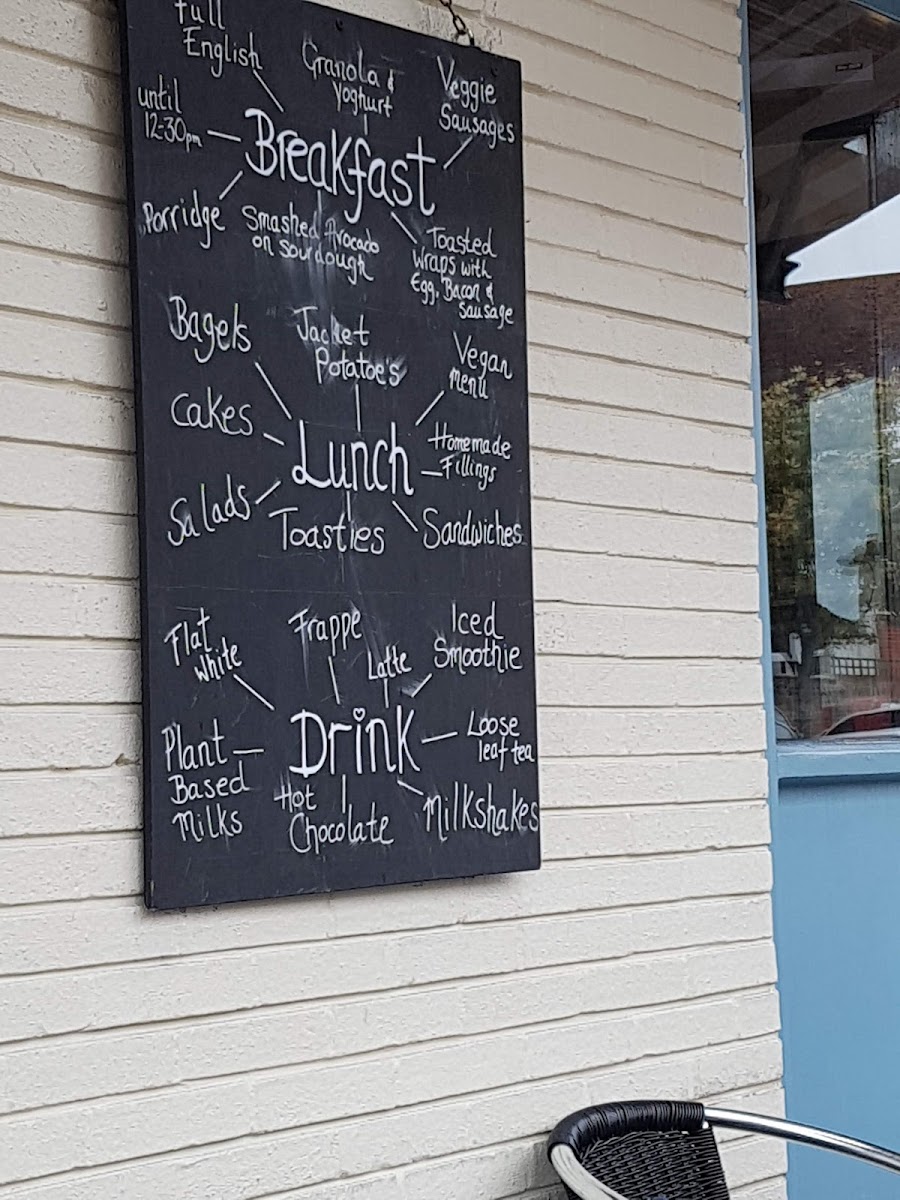 Full
English
Granola &
Yoghurt
Veggie
Sausages
until
12-30pm
Breakfast
Porridge
Smashed Avocado
on sourdough
Toasted
wraps with
Egg, Bacon &
Sausage
Bagels
Jacket
Potatoe's
Vegan
menu
Cakes
Lunch
Homemade
Fillings
Salads
Toasties
Sandwiches
Flat
White
Frappe
Latte
Iced
Smoothie
Drink
Loose
leaf tea
Plant
Based
Milks
Hot
Chocolate
Milkshakes